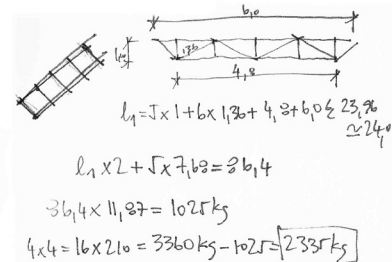 6,0
1,36
4,8
l₁=5x1+6x1,36+4,8+6,0≅23,96
≃24,0
l₁x2+5x7,68=86,4
86,4x11,87=1025kg
4x4=16x210=3360kg-1025=2335kg